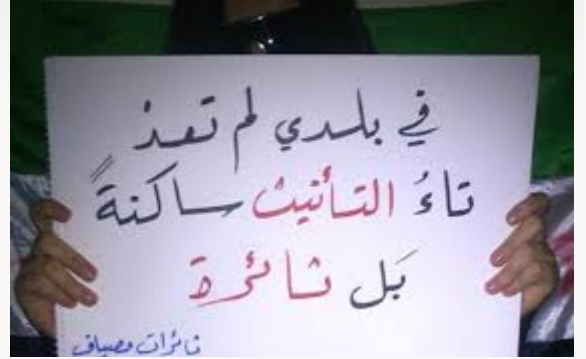 في بلدي لم تعد
تاءُ التأنيث ساكنةً
بَل ثائرة
ثائرات مصياف